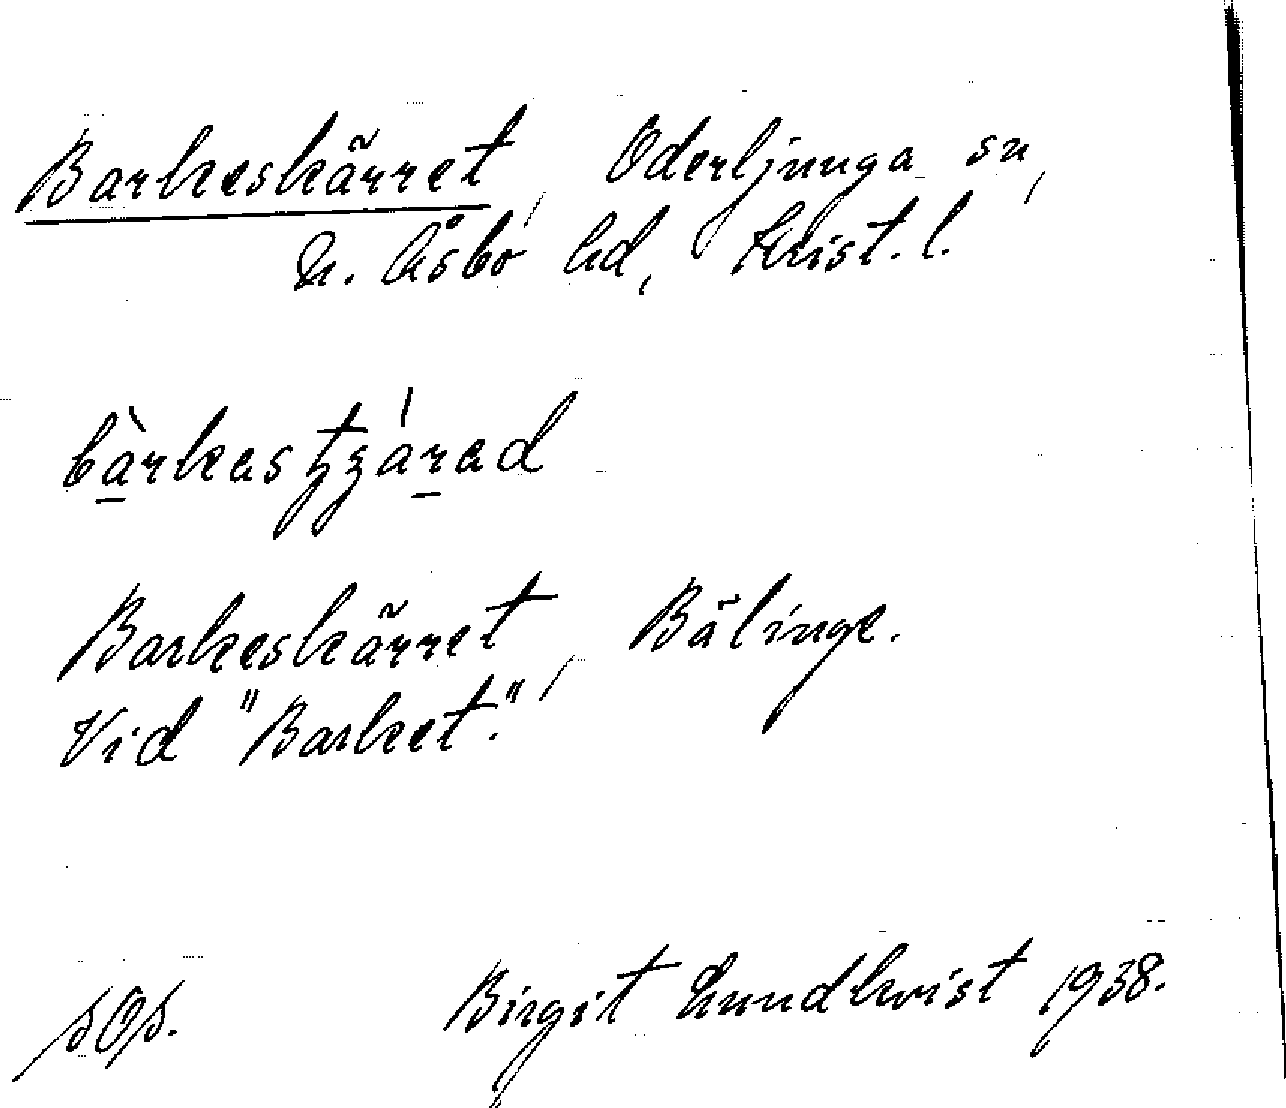 Barkeskärret, Oderljunga sn,
N. Åsbo hd, Krist. l.
bàrkastʒárad
Barkeskärret, Bälinge.
Vid "Barket".
sOs.
Birgit Lundkvist 1938.